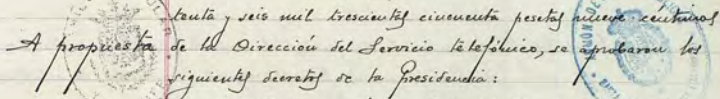 tenta y seis mil trescientas cincuenta pesetas nueve céntimos
A propuesta de la Dirección del Servicio telefónico, se aprobaron los
siguientes decretos de la Presidencia: